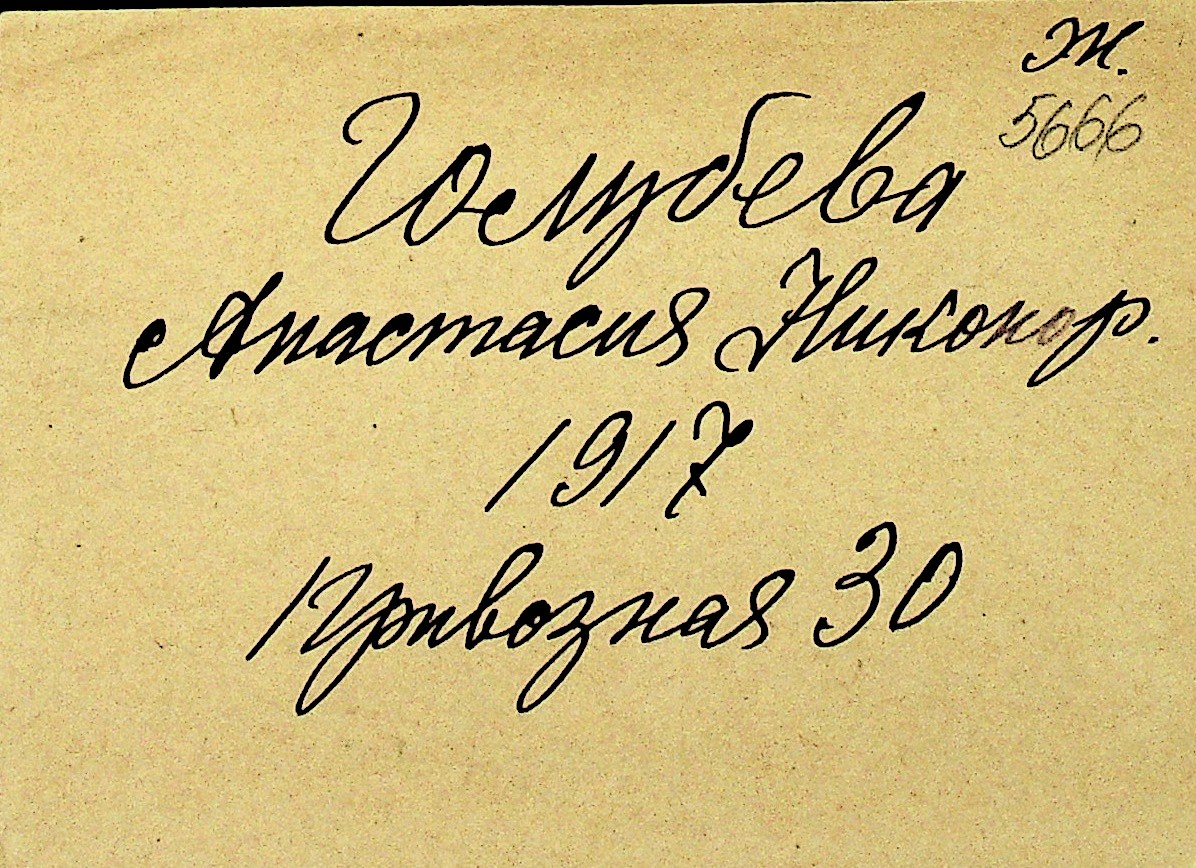 Ж.
5666
Голубева
Анастасия Никонор.
1917
Привозная 30